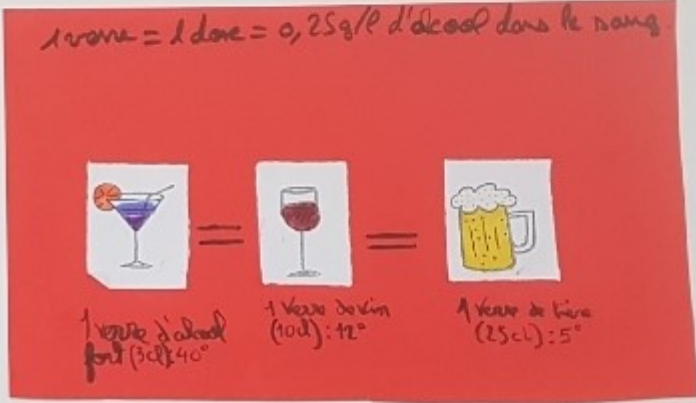 1 verre = 1 dose = 0,25g/l d'alcool dans le sang.
=
=
1 verre d'alcool
fort (3cl): 40°
1 verre de vin
(10cl): 12°
1 verre de bière
(25cl): 5°